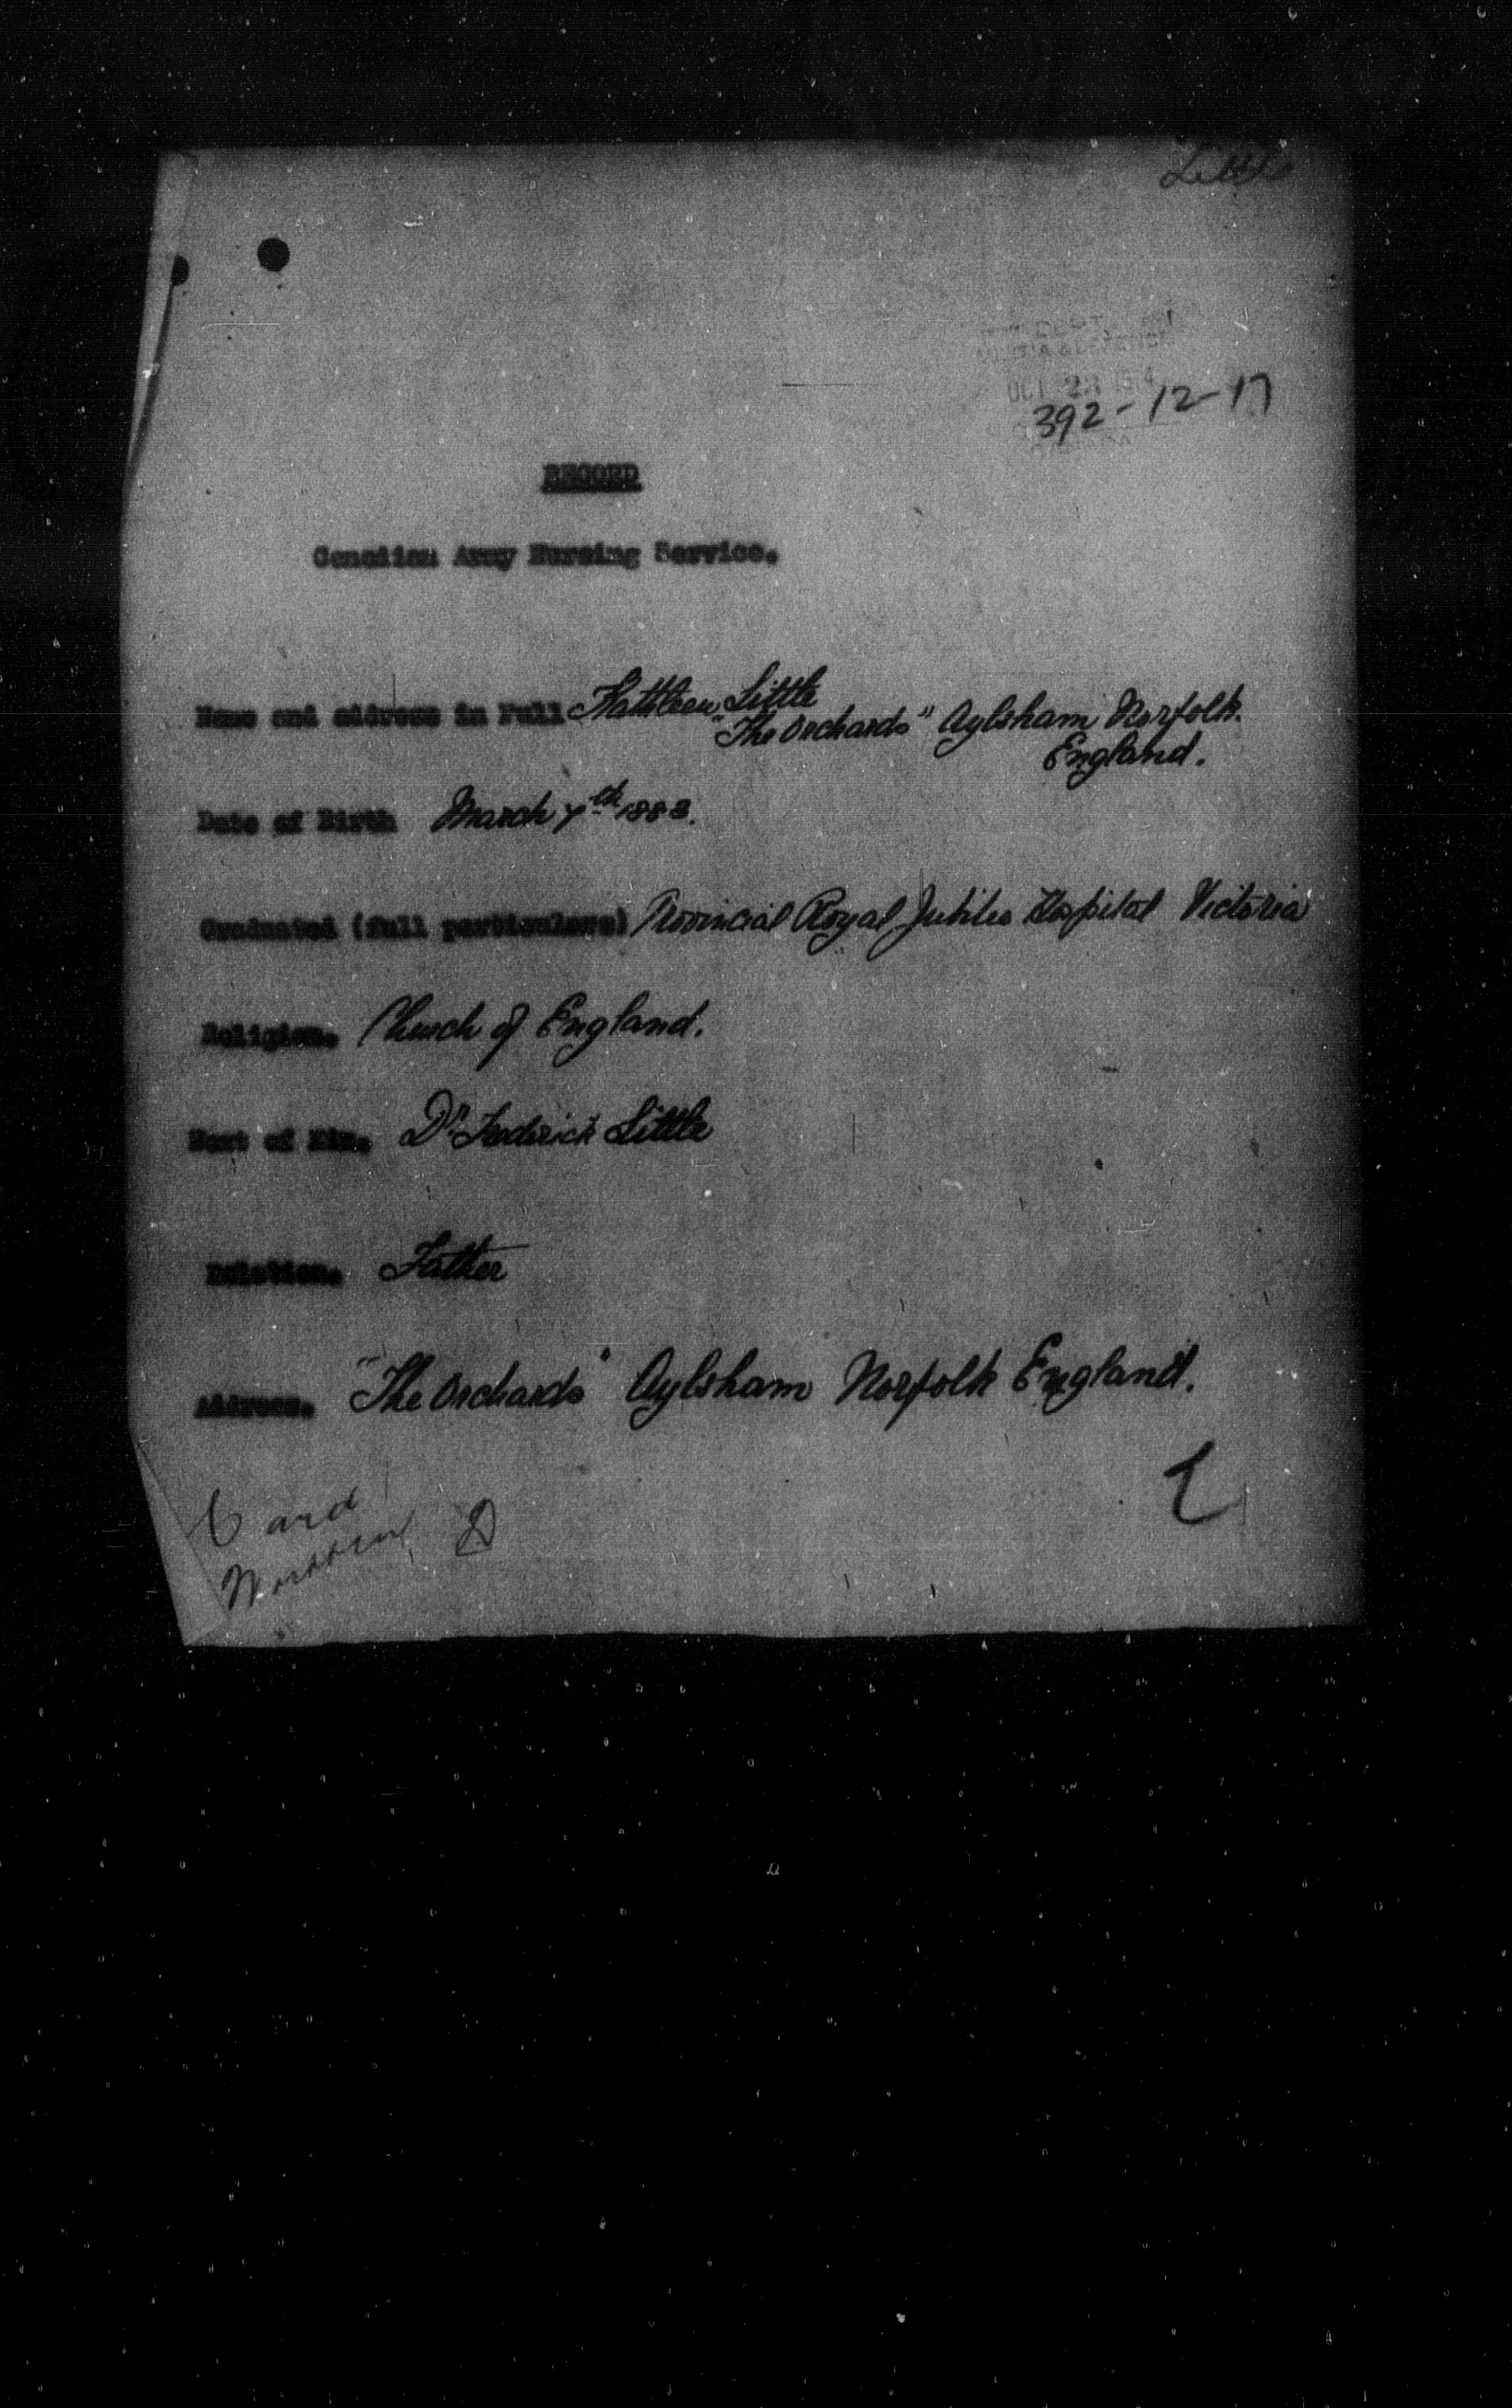 Little
MILITIA & DEFENCE
OCT 23 1914
392-12-17
RECORD
Canadian Army Nursing Service.
Name and address in Full Kathleen Little
"The Orchards" Aylsham Norfolk.
England.
Date of Birth March 7th 1883.
Graduated (full particulars) Provincial Royal Jubilee Hospital Victoria
Religion. Church of England.
Next of Kin. Dr Frederick Little
Relation. Father
Address. "The Orchards" Aylsham Norfolk England.
Card